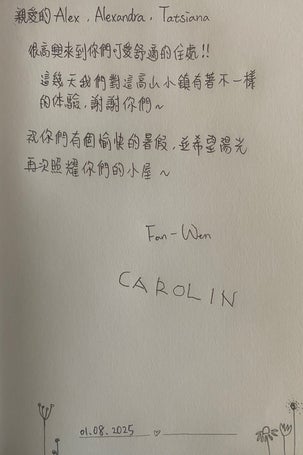 親愛的 Alex, Alexandra, Tatsiana
很高興來到你們可愛舒適的住處!!
這幾天我們對這高山小鎮有著不一樣
的体驗, 謝謝你們~
祝你們有個愉快的暑假, 並希望陽光
再次照耀你們的小屋~
Fan-Wen
CAROLIN
01.08.2025